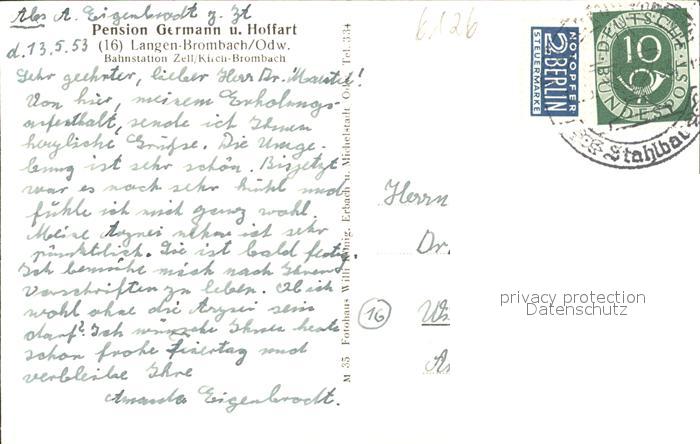 Abs A. Eigenbrodt z. Zt
Pension Germann u. Hoffart
d. 13.5.53 (16) Langen-Brombach/Odw.
Bahnstation Zell/Kirch-Brombach
Sehr geehrter, lieber Herr Dr.
Von hier, meinem Erholungs-
aufenthalt, sende ich Ihnen
herzliche Grüße. Die Umge-
bung ist sehr schön. Bis jetzt
war es noch sehr kühl und
fühle ich mich ganz wohl.
Meine Arznei nehme ich sehr
pünktlich. Sie ist bald fertig.
Ich bemühe mich nach Ihren
Vorschriften zu leben. Ob ich
wohl ohne die Arznei sein
darf? Ich wünsche Ihnen heute
schon frohe Feiertag und
verbleibe Ihre
Amanda Eigenbrodt.
M 35 Fotohaus Willi König, Erbach u. Michelstadt Odw. Tel. 334
6.126
NOTOPFER
2 BERLIN
STEUERMARKE
DEUTSCHE
10
BUNDESPOST
Stahlbau
Herrn
Dr.
16
privacy protection
Datenschutz